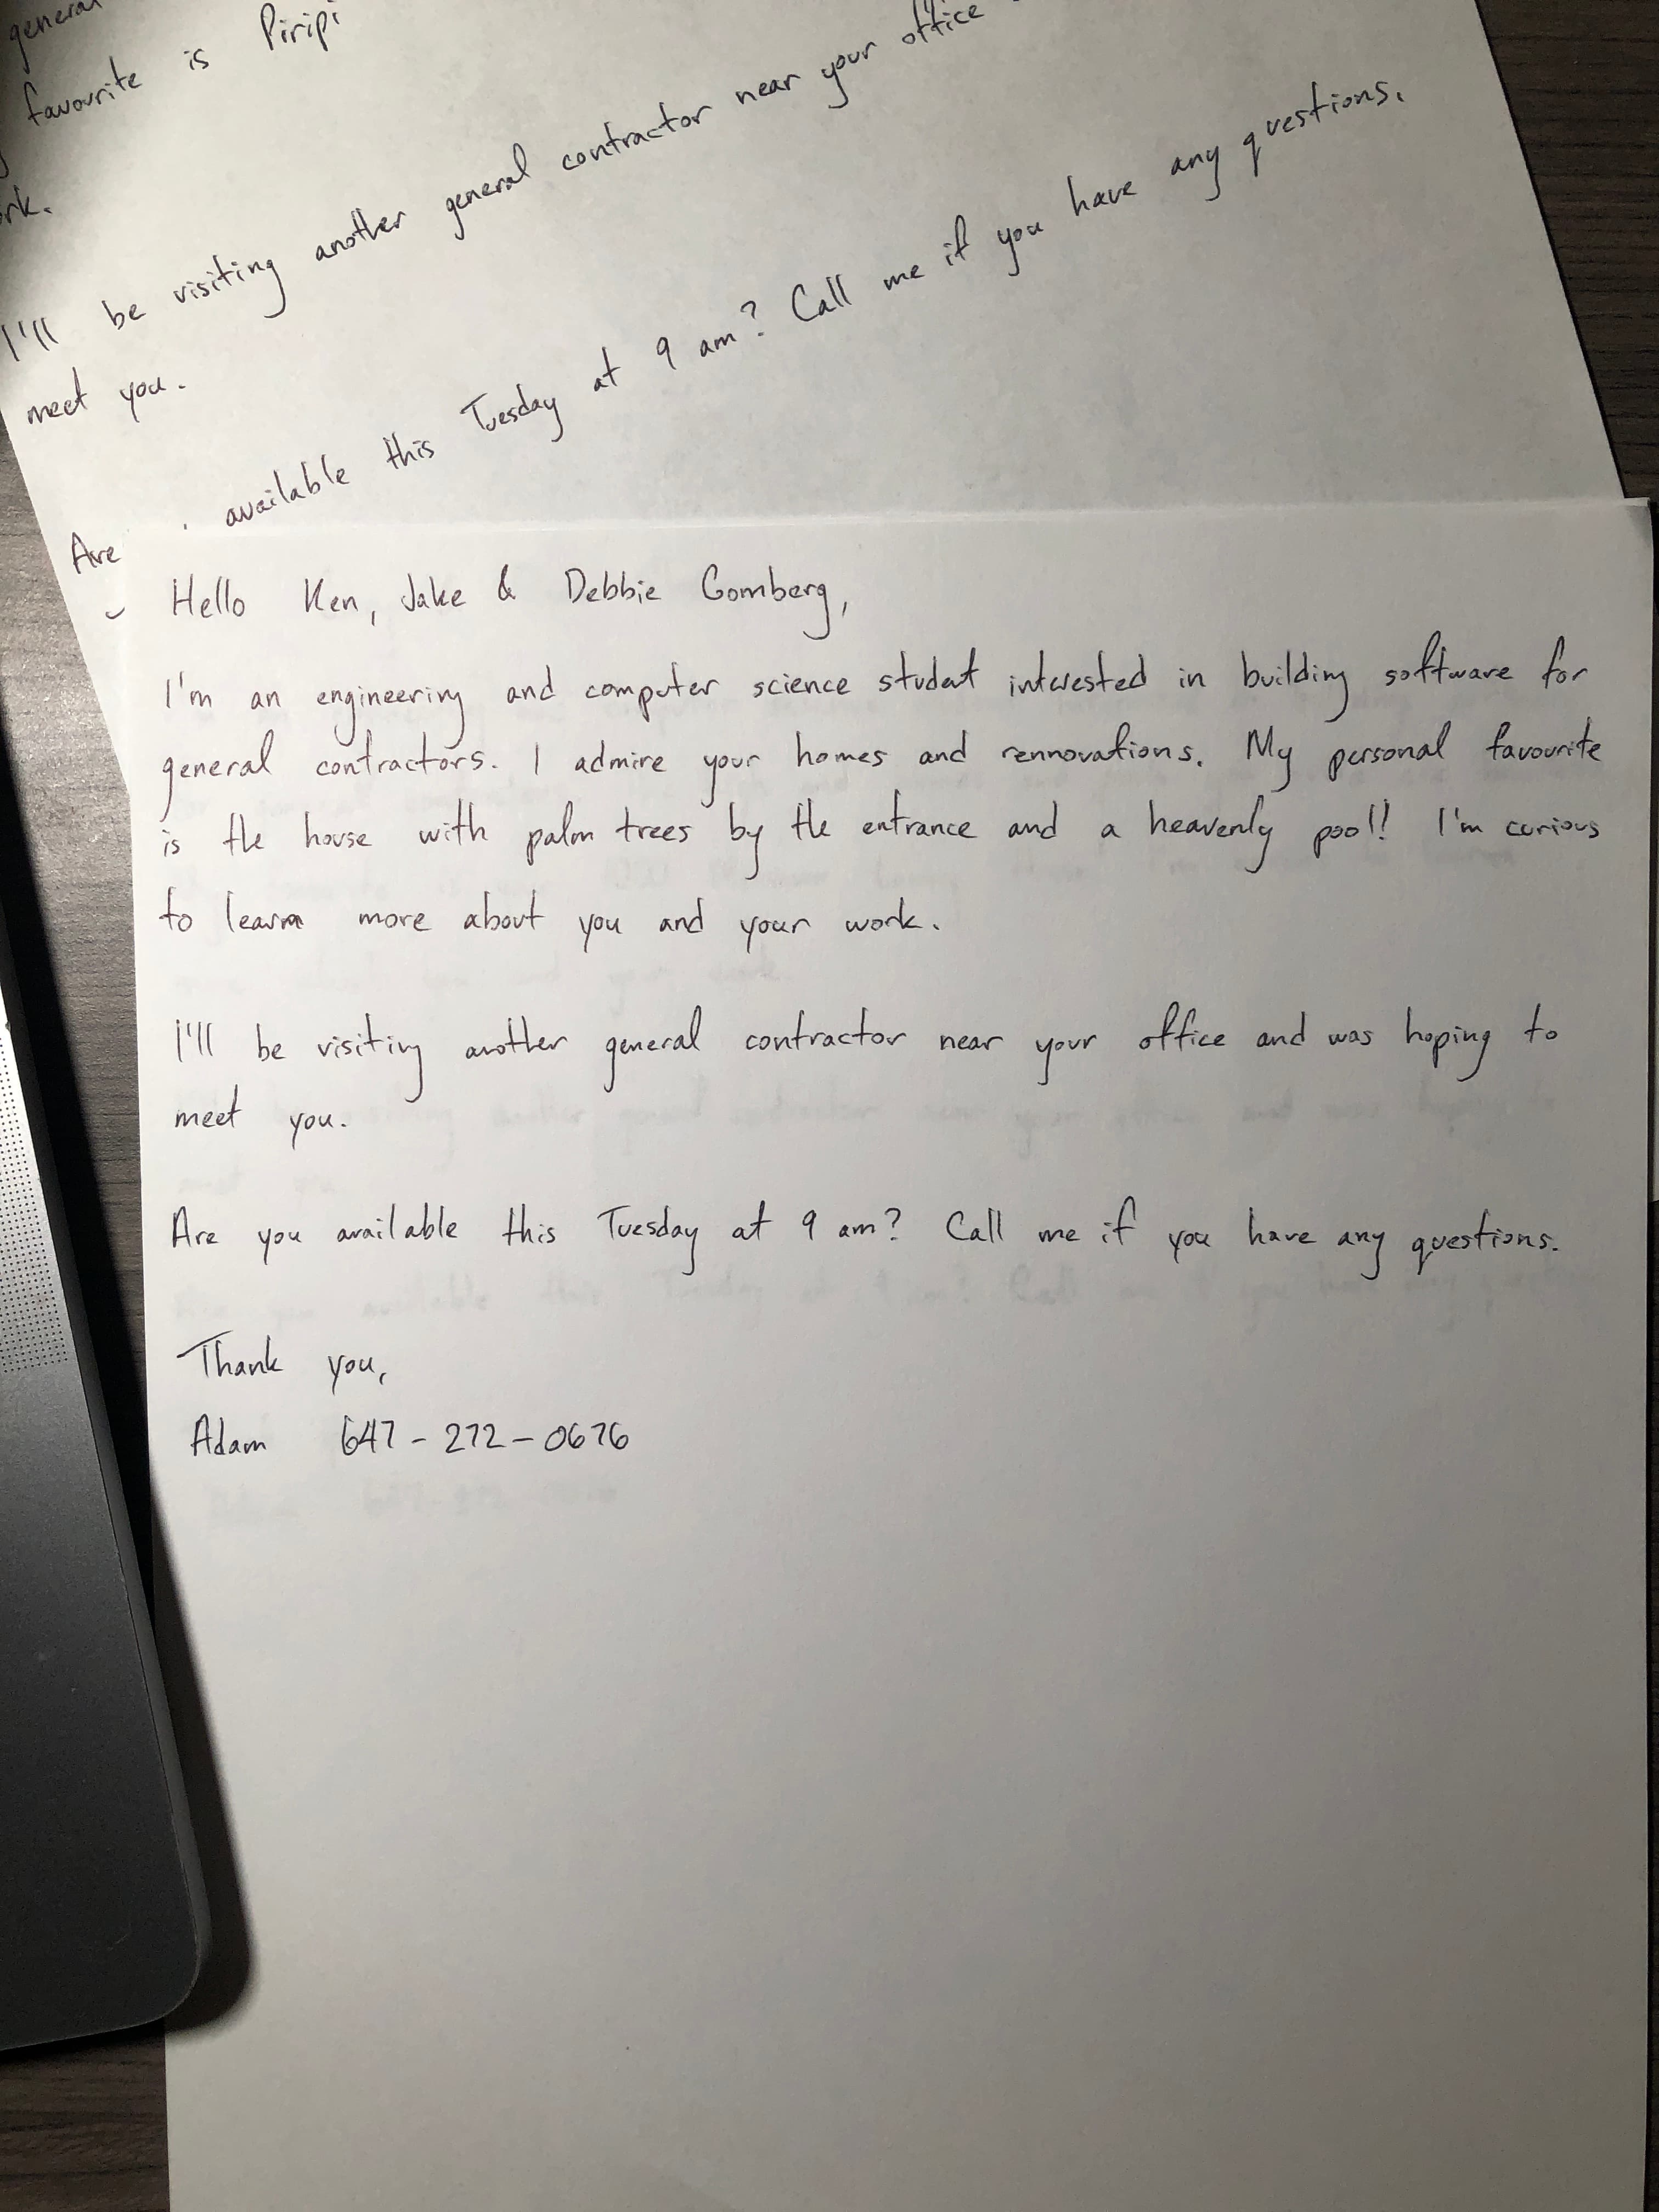 general
favourite is Piripi
rk.
I'll be visiting another general contractor near your office
meet you.
Are available this Tuesday at 9 am? Call me if you have any questions.
Hello Ken, Jake & Debbie Gomberg,
I'm an engineering and computer science student interested in building software for
general contractors. I admire your homes and rennovations. My personal favourite
is the house with palm trees by the entrance and a heavenly pool! I'm curious
to learn more about you and your work.
I'll be visiting another general contractor near your office and was hoping to
meet you.
Are you available this Tuesday at 9 am? Call me if you have any questions.
Thank you,
Adam 647-272-0676